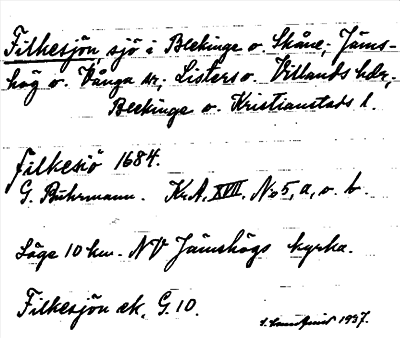 Filkesjön, sjö i Blekinge o. Skåne; Jäms-
hög o. Vånga sr; Listers o. Villands hdr;
Blekinge o. Kristianstads l.
Filkesiö 1684.
G. Buhrmann. Kr.A. XVII. No 5, a, o. b.
Läge 10 km. NV Jämshögs kyrka.
Filkesjön ek. G. 10.
1937.